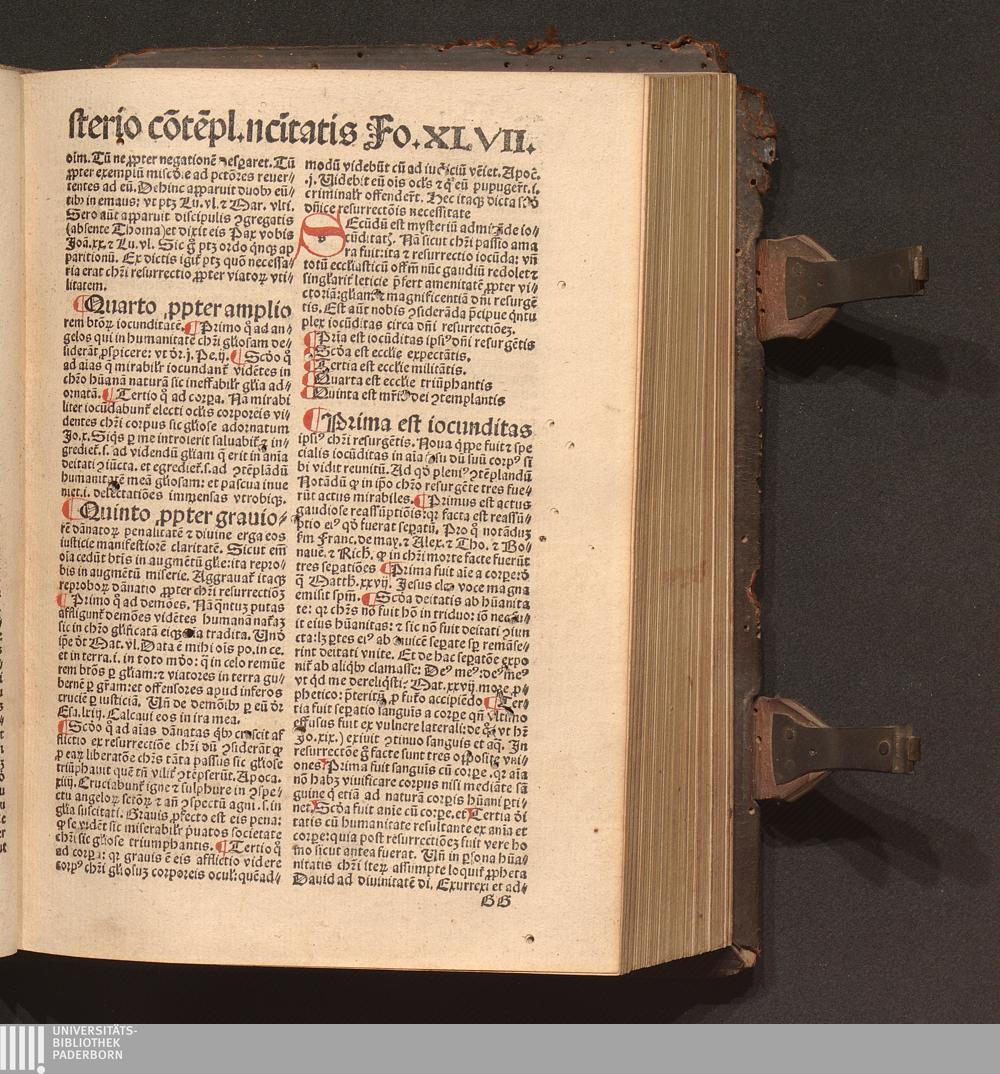 sterio cōtēpl. ncītatis Fo. XLVII.
oīm. Tū ne ꝓpter negationē ꝺesꝑaret. Tū
ꝓpter exemplū misc̄ōie ad pctōres reuer⸗
tentes ad eū. Dehinc apparuit duobꝰ eū⸗
tibꝰ in emaus: vt ptꝫ Lu. vl. ⁊ Mar. vlti.
Sero aūt apparuit discipulis ꝯgregatis
(absente Thoma) et dixit eis Pax vobis
Joā. xx. ⁊ Lu. vl. Sic g̊ ptꝫ ordo qͥnqꝫ ap
paritionū. Ex dictis igit̉ ptꝫ quō necessa⸗
ria erat chr̄i resurrectio ꝓpter viatoꝝ vti⸗
litatem.
¶Quarto ꝓpter amplio
rem btōꝝ iocunditatē. ¶Primo q̊ ad an⸗
gelos qui in humanitate chr̄i gl̄iosam de⸗
siderāt ꝓspicere: vt dr̄. j. Pe. ij. ¶Scd̄o q̊
ad aīas q̄ mirabilr̄ iocundant̉ vidētes in
chr̄o hūanā naturā sic ineffabilr̄ gl̄ia ad⸗
ornatā. ¶Tertio q̊ ad corꝑa. Nā mirabi
liter iocūdabunt̉ electi ocl̄is corporeis vi⸗
dentes chr̄i corpus sic gl̄iose adornatum
Jo. x. Siqͥs ꝑ me introierit saluabit̉ ⁊ in⸗
grediet̉. s. ad videndū gl̄iam q̄ erit in aīma
deitati ꝯiūcta. et egrediet̉. s. ad ꝯtēplādū
humanitatē meā gl̄iosam: et pascua inue
niet. i. delectatiōes immensas vtrobiqꝫ.
¶Quinto ꝓpter grauio⸗
rē dānatoꝝ penalitatē ⁊ diuine erga eos
iusticie manifestiorē claritatē. Sicut em̄
oīa cedūt btīs in augmētū gl̄ie: ita repro⸗
bis in augmētū miserie. Aggrauat̉ itaqꝫ
reproboꝝ dānatio ꝓpter chr̄i resurrectiōꝫ
¶Primo q̊ ad demōes. Nā qͣntuꝫ putas
affligunt̉ demōes vidētes humanā nat̉aꝫ
sic in chr̄o gl̄ificatā tradita. Vnō
ip̄e dt̄ Mat. vl. Data ē mihi oīs po. in ce.
et in terra. i. in toto mōo: q̄ in celo remūe
rem btōs ꝑ gl̄iam: ⁊ viatores in terra gu⸗
bernē ꝑ gr̄am: et offensores apud inferos
trucie ꝑ iusticiā. Vn̄ de demōibꝰ ꝑ eū dr̄
Esa. lxiij. Calcaui eos in ira mea.
¶Scd̄o q̊ ad aīas dānatas qͥbꝰ crescit af
flictio ex resurrectiōe chr̄i dū ꝯsiderāt ꝙ
ꝓ eaꝝ liberatōe chr̄s tāta passus sic gl̄iose
triūphauit quē tn̄ vilit̉ ꝯtēpserūt. Apoca.
xiiij. Cruciabunt̉ igne ⁊ sulphure in ꝯspe⸗
ctu angeloꝝ sctōꝝ ⁊ an̄ ꝯspectū agni. s. in
gl̄ia suscitati. Grauis ꝓfecto est eis pena:
ꝙ se vidēt sic miserabilr̄ priuatos societate
chr̄i sic gl̄iose triumphantis. ¶Tertio q̊
ad corꝑa: qꝛ grauis ē eis afflictio videre
corpꝰ chr̄i gl̄iosuꝫ corporeis ocul': quēad⸗
modū videbūt cū ad iudiciū vēiet. Apoč.
.j. Videbit eū oīs ocl̄s ⁊ qͥ eū pupugert̄. i.
criminalr̄ offendert̄. Hec itaqꝫ dicta sc̄ꝺo
dn̄ice resurrectōis necessitate
SEcūdū est mysteriū admirāde io⸗
cūditatꝭ. Nā sicut chr̄i passio ama
ra fuit: ita ⁊ resurrectio iocūda: vn̄
totū ecclīasticū offm̄ nūc gaudiū redolet ⁊
singlarit̉ leticie p̄fert amenitatē ꝓpter vi⸗
ctoriā: gl̄iam ⁊ magnificentiā dn̄i resurgē
tis. Est aūt nobis ꝯsiderāda p̄cipue qͥntu
plex iocūditas circa dn̄i resurrectiōeꝫ.
¶Prīa est iocūditas ipsiꝰ dn̄i resurgētis
¶Scd̄a est ecclīe expectātis.
¶Tertia est ecclīe militātis.
¶Quarta est ecclīe triūphantis
¶Quinta est mr̄is dei ꝯtemplantis
¶Prima est iocunditas
ipsiꝰ chr̄i resurgētis. Noua qͥppe fuit ⁊ spe
cialis iocūditas in aīa ei dū suū corpꝰ si
bi vidit reunitū. Ad qd̄ pleniꝰ ꝯtēplandū
Notādū ꝙ in ipō chr̄o resurgēte tres fue⸗
rūt actus mirabiles. ¶Primus est actus
gaudiose reassūptiōis: qꝛ facta est reassū⸗
ptio eiꝰ qd̄ fuerat seꝑatū. Pro qͦ notāduꝫ
fm Franc. de may. ⁊ Alex. ⁊ Tho. ⁊ Bo⸗
nauē. ⁊ Rich. ꝙ in chr̄i morte facte fuerūt
tres seꝑatiōes ¶Prima fuit aīe a corꝑe: d̄
q̄ Matth. xxvij. Jesus clamās voce magna
emisit spm̄. ¶Scd̄a deitatis ab hūanita
te: qꝛ chr̄s nō fuit hō in triduo: iō
it eius hūanitas: ⁊ sic nō fuit deitati ꝯiun
cta: lꝫ ꝑtes eiꝰ ab inuicē seꝑate sꝑ remāse⸗
rint deitati vnite. Et de hac seꝑatōe expo
nit̉ ab aliqͥbꝰ clamasse: Deꝰ meꝰ: deꝰ meꝰ
vt qd me dereliqͥsti: Mat. xxvij. more ꝓ⸗
phetico: p̄teritū ꝓ fut̉o accipiēdo ¶Ter⸗
tia fuit seꝑatio sanguis a corꝑe qn̄ vltimo
effusus fuit ex vulnere laterali: de qͦ (vt hr̄
Jo. xix.) exiuit ꝯtinuo sanguis et aq̄. In
resurrectōe g̊ facte sunt tres opposite vni⸗
ones Prima fuit sanguis cū corꝑe. qꝛ aīa
nō habꝫ viuificare corpus nisi mediāte sā
guine qͥ etiā ad naturā corꝑis hūani ꝑti⸗
net. Scd̄a fuit anie cū corꝑe. et Tertia di
tatis cū humanitate resultante ex anīa et
corꝑe: quia post resurrectiōeꝫ fuit vere ho
mo sicut antea fuerat. Vn̄ in ꝑsona hūa⸗
nitatis chr̄i iteꝝ assumpte loquit̉ ꝓpheta
Dauid ad diuinitatē di. Exurrexi et ad⸗
GG
UNIVERSITÄTS-
BIBLIOTHEK
PADERBORN